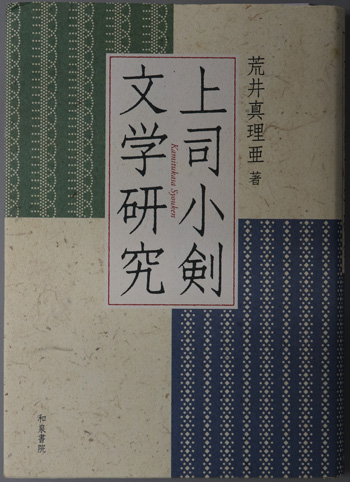 荒井真理亜 著
上司小剣
文学研究
Kamitukasa Syouken
和泉書院